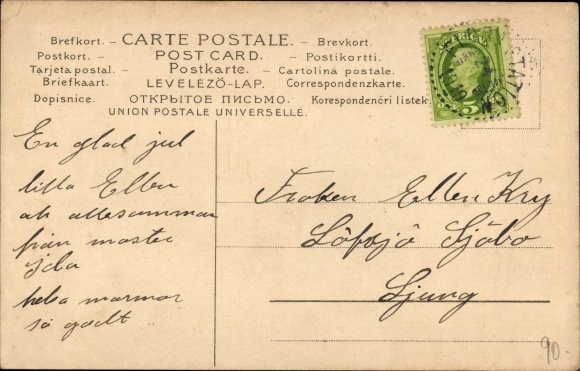 Brefkort. – CARTE POSTALE. – Brevkort.
Postkort. – POST CARD. – Postikortti.
Tarjeta postal. – Postkarte. – Cartolina postale.
Briefkaart. LEVELEZÖ-LAP. Correspondenzkarte.
Dopisnice. ОТКРЫТОЕ ПИСЬМО. Korespondenčri listek.
UNION POSTALE UNIVERSELLE.
En glad jul
lilla Ellen
ah allesamman
från moster
Ida
helsa marmor
så godt
Froken Ellen Kry
Löfsjö Sjöbo
Ljung
5
90.-